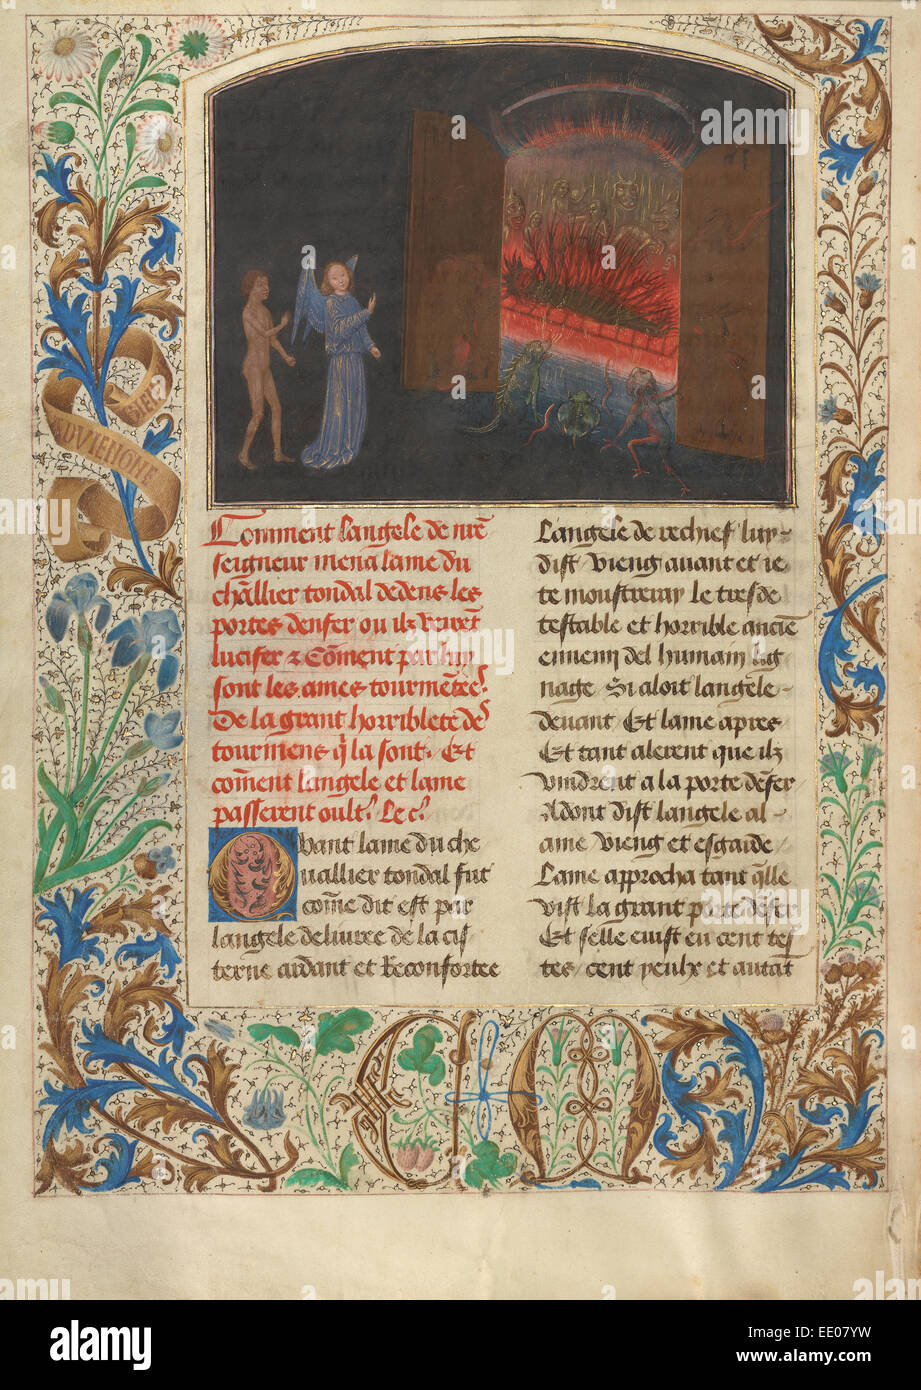 BIEN
ADVIEIGNE
Comment langele de nr̄e
seigneur mena lame du
ch̄allier tondal dedens les
portes denfer ou ilz virēt
lucifer & Cōment par luy
sont les ames tourmētees
De la grant horriblete des
tourmens q̄ la sont. Et
cōment langele et lame
passerent oultʳ. Le cʳ.
Quant lame du che
uallier tondal fut
cōme dit est par
langele deliuree de la cis
terne aidant et Reconfortee
Langele de rechief luy
dist / Vieng auant et ie
te monstreray le tresde
testable et horrible anciē
ennemy del humain lig
nage / Si aloit langele
deuant Et lame apres
Et tant alerent que ilz
vindrent a la porte dēfer
Adont dist langele al
ame Vieng et esgarde
Lame approcha tant q̄lle
vist la grant porte dēfer
Et selle euist eu cent tes
tes / cent yeulx et autāt
C M
a alamy stock photo
alamy
Image ID: EE07YW
www.alamy.com